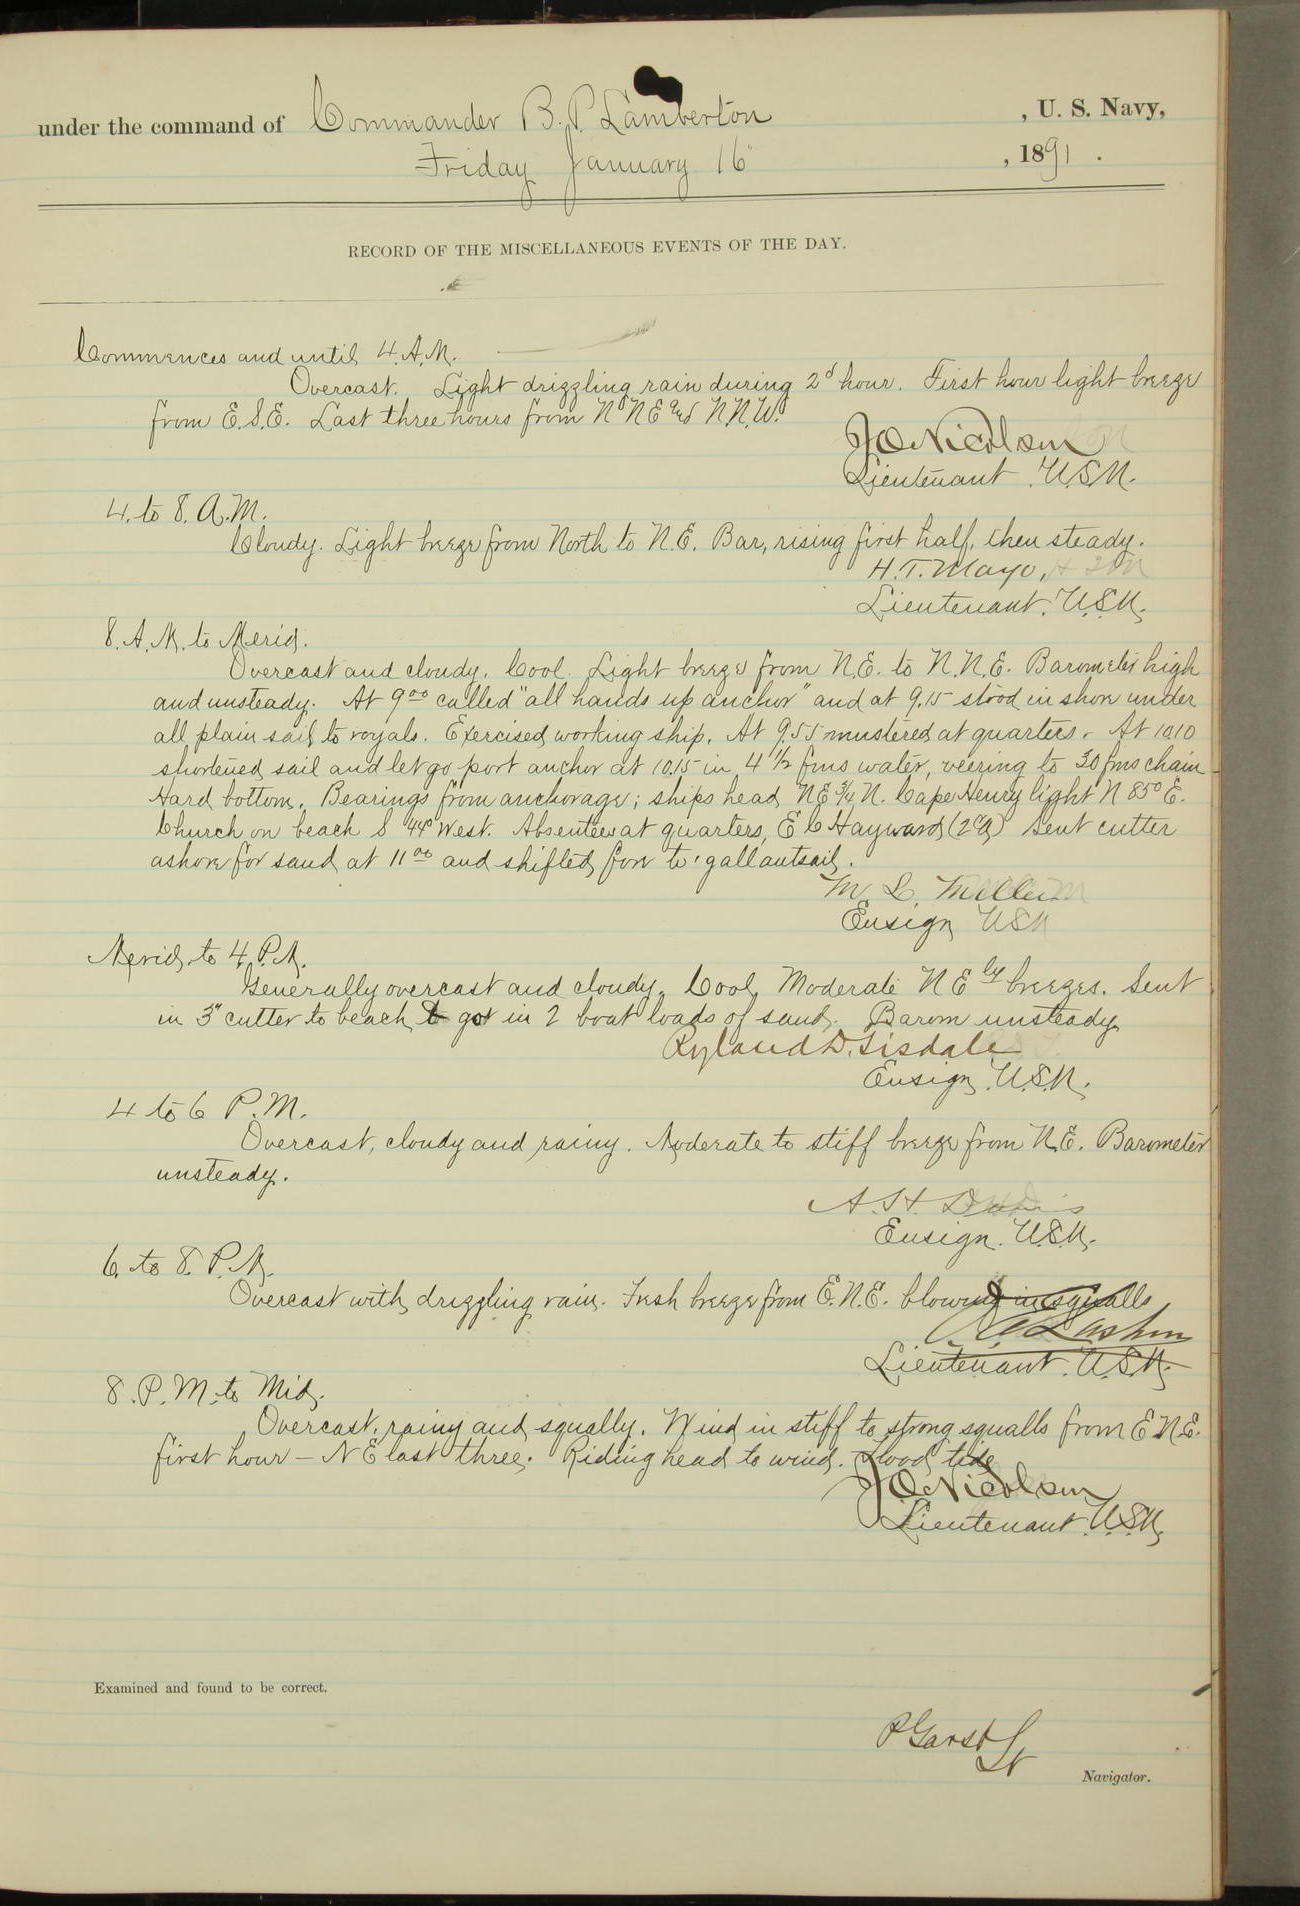 under the command of Commander B. P. Lamberton , U. S. Navy,
Friday January 16" , 1891 .
RECORD OF THE MISCELLANEOUS EVENTS OF THE DAY.
Commences and until 4. A.M.
Overcast. Light drizzling rain during 2d hour. First hour light breeze
from E.S.E. Last three hours from N'N'E and N.N.W.
J O Nicolson
Lieutenant U.S.N.
4. to 8. A.M.
Cloudy. Light breeze from North to N.E. Bar, rising first half, then steady.
H. T. Mayo,
Lieutenant. U.S.N.
8. A.M. to Merid.
Overcast and cloudy. Cool. Light breeze from N.E. to N.N.E. Barometer high
and unsteady. At 9 00 called "all hands up anchor" and at 9.15 stood in shore under
all plain sail to royals. Exercised working ship. At 9.55 mustered at quarters. At 10.10
shortened sail and let go port anchor at 10.15 in 4 1/2 fms water, veering to 30 fms chain
Hard bottom. Bearings from anchorage; ships head NE 3/4 N. Cape Henry light N 85° E.
Church on beach S 44° West. Absentees at quarters, E C Hayward Sent cutter
ashore for sand at 11 00 and shifted fore to'gallantsail.
M. L. Miller
Ensign USN
Merid. to 4. P.M.
Generally overcast and cloudy. Cool. Moderate N E ly breezes. Sent
in 3" cutter to beach & got in 2 boat loads of sand. Barom unsteady
Ryland D. Tisdale
Ensign U.S.N.
4 to 6 P.M.
Overcast, cloudy and rainy. Moderate to stiff breeze from N.E. Barometer
unsteady.
A. H. Davis
Ensign. U.S.N.
6. to 8. P.M.
Overcast with drizzling rain. Fresh breeze from E.N.E. blowing in squalls
Lasher
Lieutenant. U.S.N.
8. P.M. to Mid.
Overcast, rainy and squally. Wind in stiff to strong squalls from E N E.
first hour – N E last three. Riding head to wind. Flood tide
J O Nicolson
Lieutenant U.S.N.
Examined and found to be correct.
P Garst
Lt
Navigator.